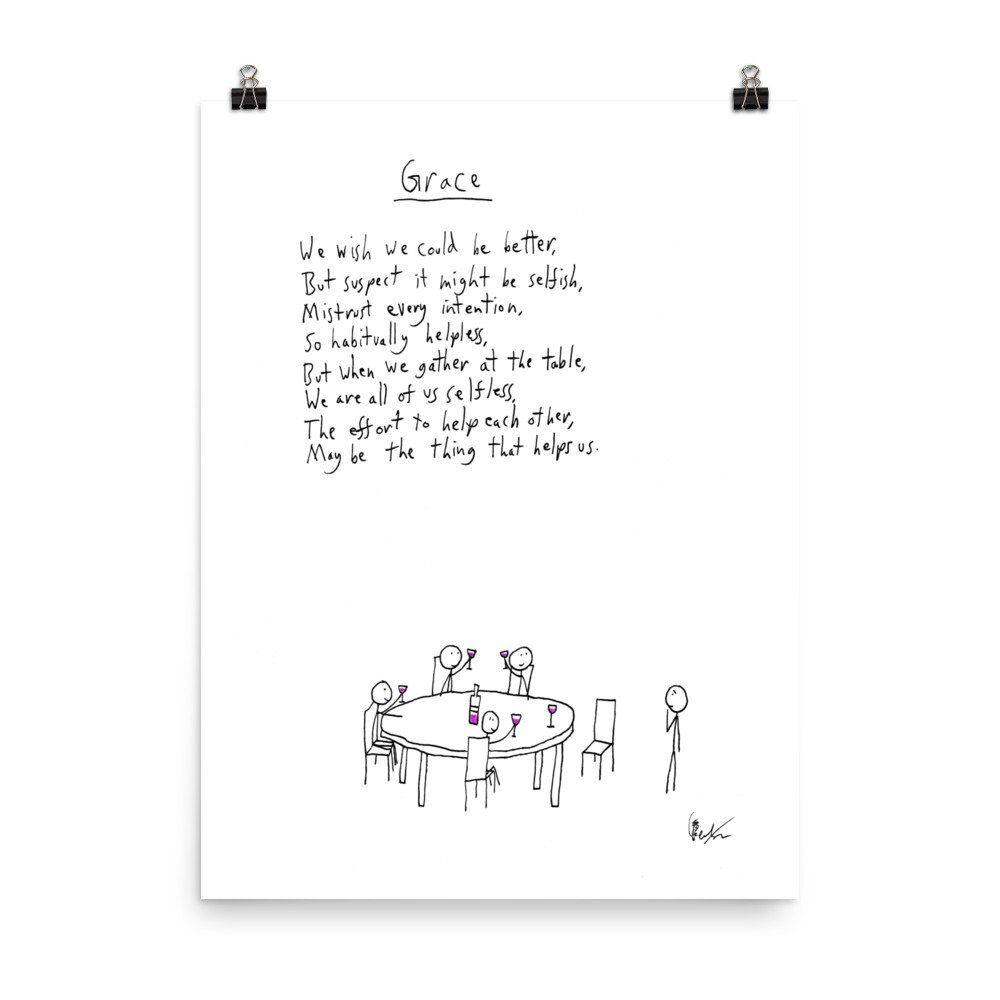 Grace
We wish we could be better,
But suspect it might be selfish,
Mistrust every intention,
So habitually helpless,
But when we gather at the table,
We are all of us selfless,
The effort to help each other,
May be the thing that helps us.